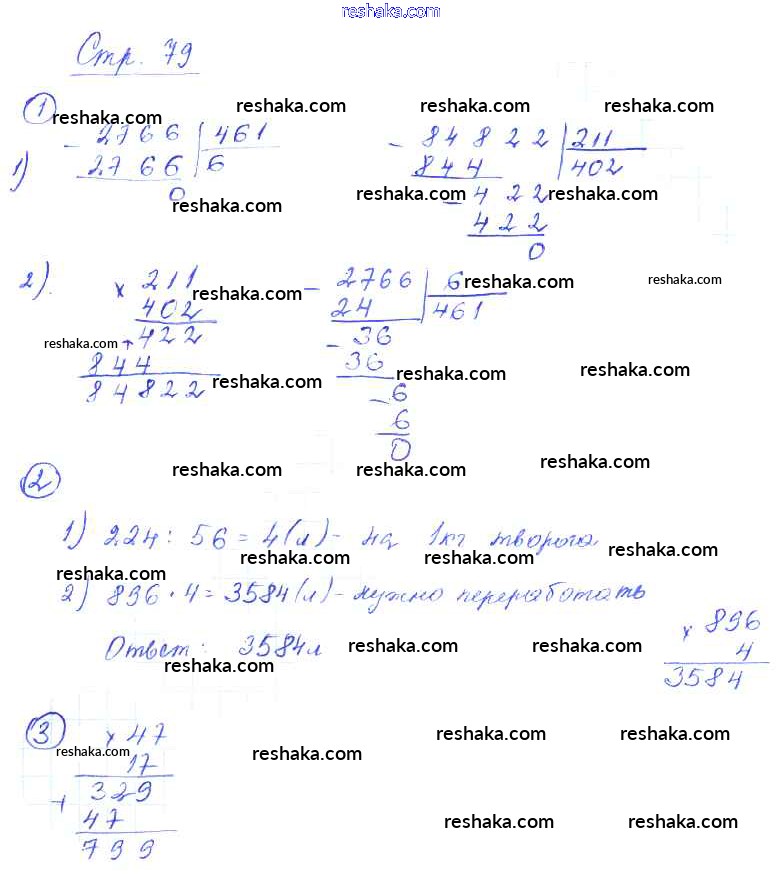 reshaka.com
Стр. 79
1
reshaka.com reshaka.com reshaka.com reshaka.com
1)
- 2766 | 461
2766 | 6
0
- 84822 | 211
844 | 402
- 422
422
0
reshaka.com reshaka.com reshaka.com
2).
× 211
402
+ 422
844
84822
- 2766 | 6
24 | 461
- 36
36
- 6
6
0
reshaka.com reshaka.com reshaka.com
reshaka.com reshaka.com reshaka.com reshaka.com
2
reshaka.com reshaka.com reshaka.com
1) 224 : 56 = 4(л) - на 1кг творога
reshaka.com reshaka.com reshaka.com reshaka.com
2) 896 · 4 = 3584(л) - нужно переработать
Ответ: 3584л
× 896
4
3584
reshaka.com reshaka.com reshaka.com
3
× 47
17
+ 329
47
799
reshaka.com reshaka.com reshaka.com reshaka.com
reshaka.com reshaka.com